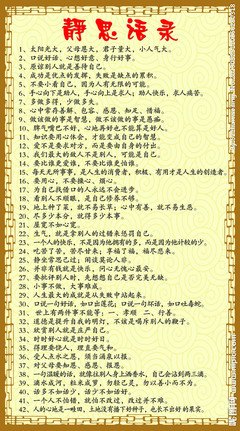 靜思语录
1、太阳光大，父母恩大，君子量大，小人气大。
2、口说好话、心想好意、身行好事。
3、原谅别人就是善待自己。
4、成功是优点的发挥，失败是缺点的累积。
5、不要小看自己，因为人有无限的可能。
6、手心向下是助人，手心向上是求人；助人快乐，求人痛苦。
7、多做多得，少做多失。
8、心中常存善解、包容、感恩、知足、惜福。
9、做该做的事是智慧，做不该做的事是愚痴。
10、脾气嘴巴不好，心地再好也不能算是好人。
11、知识要用心体会，才能变成自己的智慧。
12、爱不是要求对方，而是要由自身的付出。
13、我们最大的敌人不是别人，可能是自己。
14、要比谁更爱谁，不要比谁更怕谁。
15、每天无所事事，是人生的消费者，积极、有用才是人生的创造者。
16、要用心，不要操心、烦心。
17、为自己找借口的人永远不会进步。
18、看别人不顺眼，是自己修养不够。
19、地上种了菜，就不易长草；心中有善，就不易生恶。
20、尽多少本分，就得多少本事。
21、屋宽不如心宽。
22、生气，就是拿别人的过错来惩罚自己。
23、一个人的快乐，不是因为他拥有的多，而是因为他计较的少。
24、吃苦了苦，苦尽甘来；享福了福，福尽悲来。
25、静坐常思己过；闲谈莫论人非。
26、并非有钱就是快乐，问心无愧心最安。
27、要批评别人时，先想想自己是否完美无缺。
28、小事不做，大事难成。
29、人生最大的成就是从失败中站起来。
30、口说一句好话，如口出莲花；口说一句坏话，如口吐毒蛇。
31、世上有两件事不能等：一、孝顺 二、行善。
32、道德是提升自我的明灯，不该是呵斥别人的鞭子。
33、欣赏别人就是庄严自己。
34、时时好心就是时时好日
35、得理要饶人，理直要气和。
36、受人点水之恩，须当涌泉以报。
37、对父母要知恩、感恩、报恩。
38、一句温暖的话，就像往别人身上洒香水，自己会沾到两三滴。
39、滴水成河，粒米成箩，勿轻己灵，勿以善小而不为。
40、话多不如话少，话少不如话好。
41、一个人不怕错，就怕不改过，改过并不难。
42、人的心地是一畦田，土地没有播下好种子，也长不出好的果实。